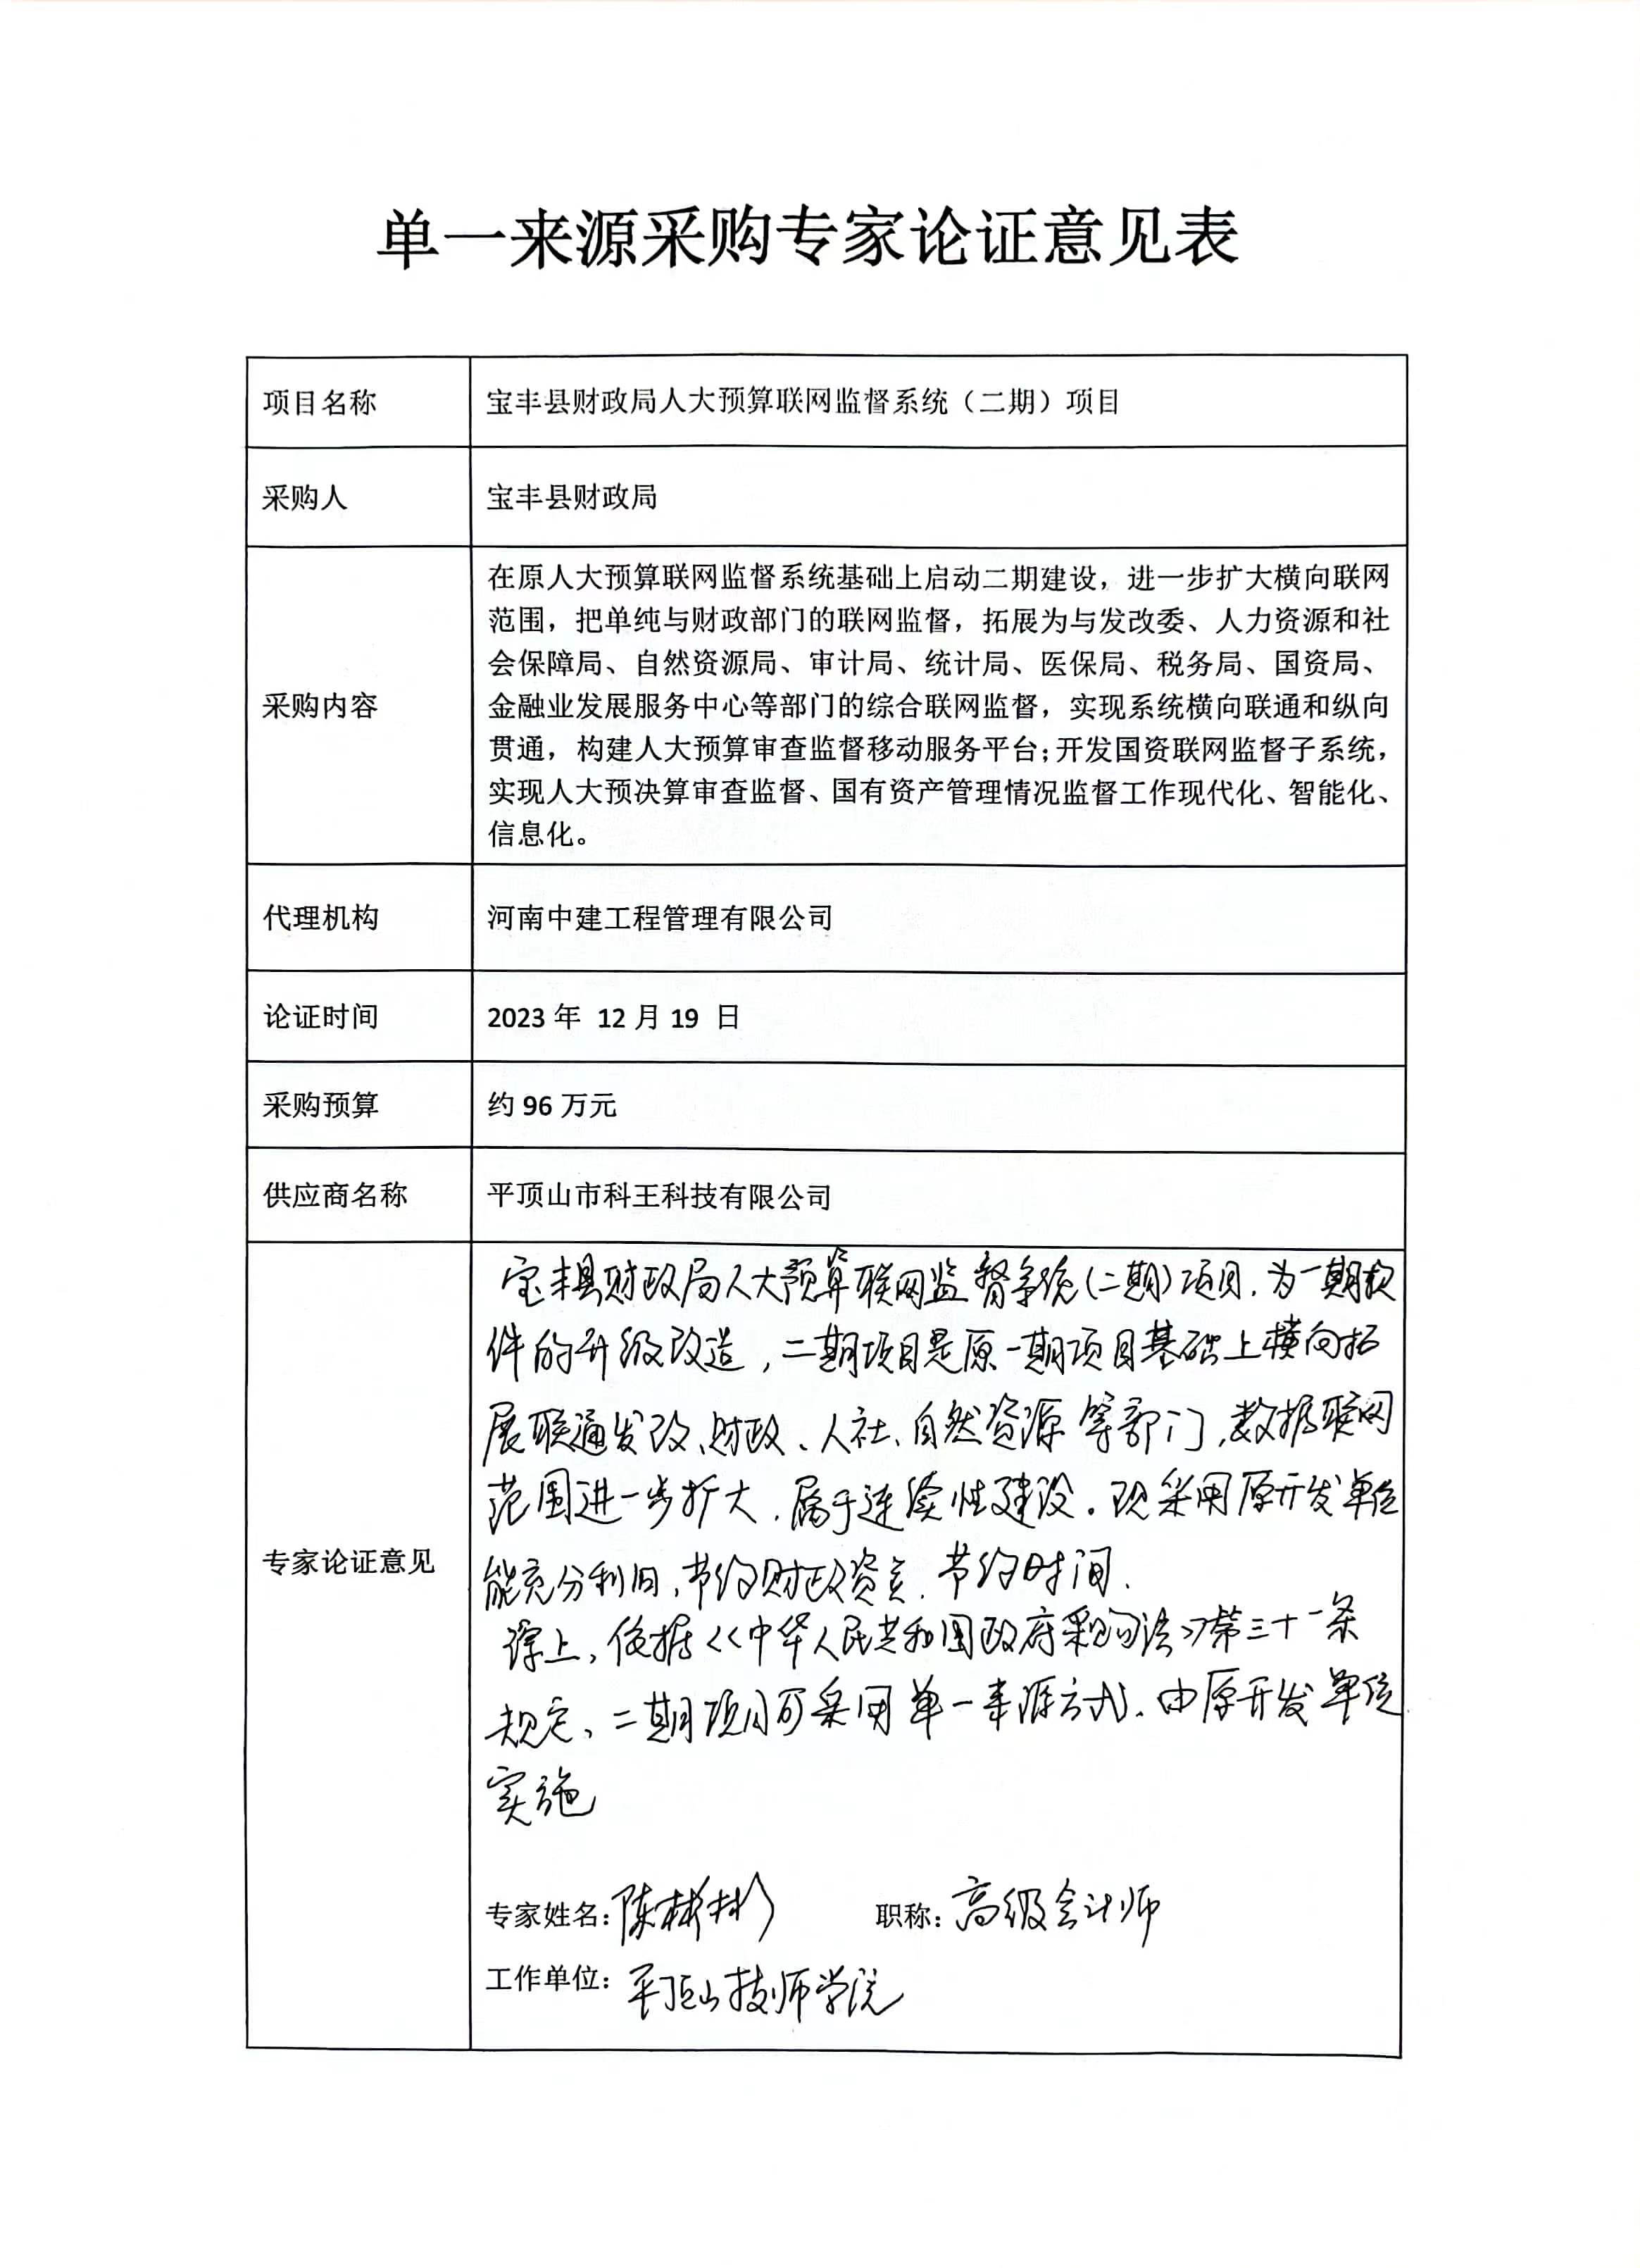 单一来源采购专家论证意见表
项目名称
宝丰县财政局人大预算联网监督系统（二期）项目
采购人
宝丰县财政局
采购内容
在原人大预算联网监督系统基础上启动二期建设，进一步扩大横向联网
范围，把单纯与财政部门的联网监督，拓展为与发改委、人力资源和社
会保障局、自然资源局、审计局、统计局、医保局、税务局、国资局、
金融业发展服务中心等部门的综合联网监督，实现系统横向联通和纵向
贯通，构建人大预算审查监督移动服务平台；开发国资联网监督子系统，
实现人大预决算审查监督、国有资产管理情况监督工作现代化、智能化、
信息化。
代理机构
河南中建工程管理有限公司
论证时间
2023 年 12 月 19 日
采购预算
约 96 万元
供应商名称
平顶山市科王科技有限公司
专家论证意见
宝丰县财政局人大预算联网监督系统(二期)项目，为一期软
件的升级改造，二期项目是原一期项目基础上横向拓
展联通发改、财政、人社、自然资源等部门，数据联网
范围进一步扩大，属于连续性建设。现采用原开发单位
能充分利旧，节约财政资金，节约时间.
综上，依据<<中华人民共和国政府采购法>>第三十一条
规定，二期项目可采用单一来源方式，由原开发单位
实施
专家姓名：陈彬彬 职称：高级会计师
工作单位：平顶山技师学院